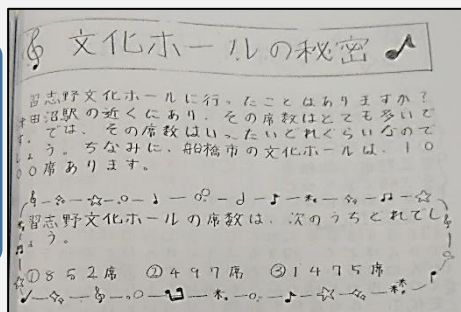 文化ホールの秘密
習志野文化ホールに行ったことはありますか?
津田沼駅の近くにあり、その席数はとても多いで
す。では、その席数はいったいどれぐらいなので
しょう。ちなみに、船橋市の文化ホールは、10
00席あります。
習志野文化ホールの席数は、次のうちどれでし
ょう。
①852席 ②497席 ③1475席